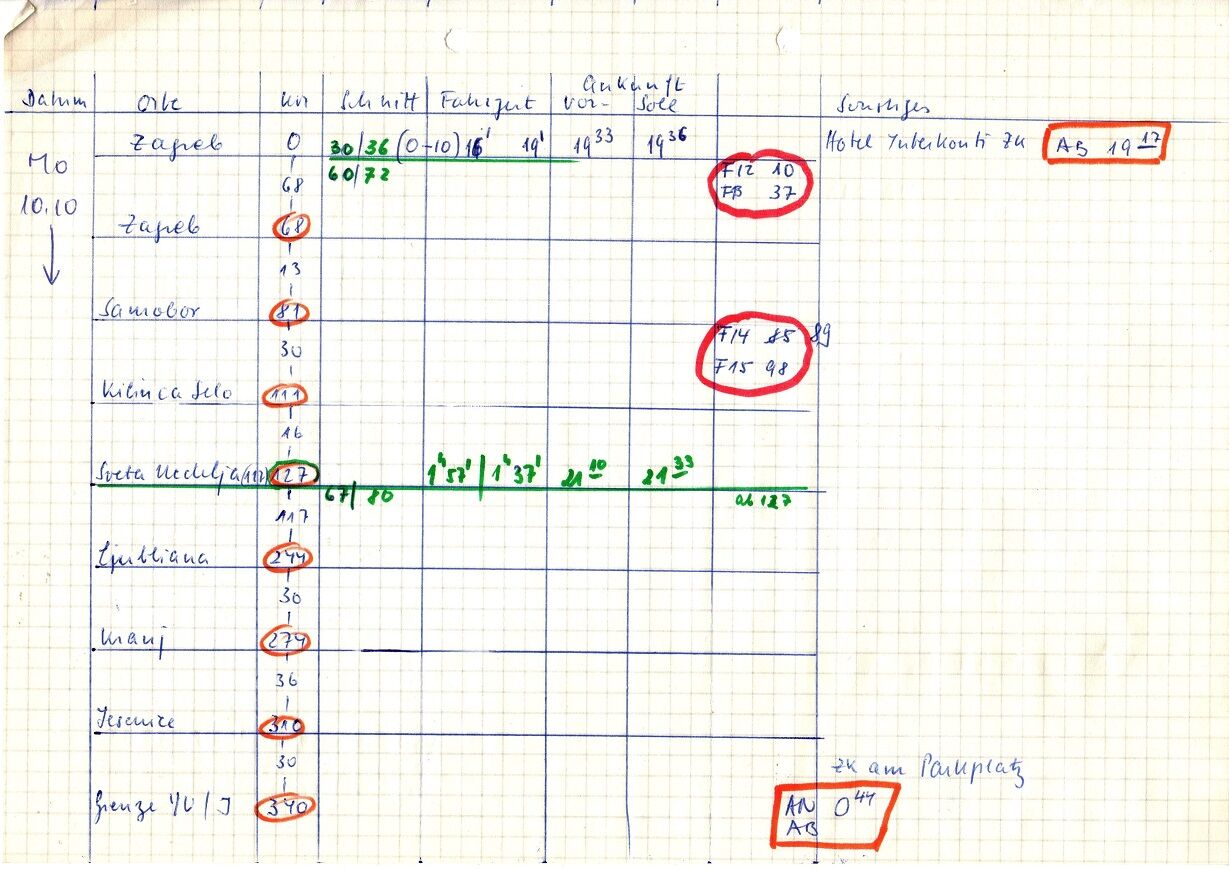 Ankunft
Datum Orte km Schnitt Fahrzeit vor- Soll Sonstiges
Zagreb 0 30/36 (0-10) 16' 19' 19 33 19 36 Hotel Interkonti ZK AB 19 17
MO 60/72 F12 10
68 FB 37
10.10
Zagreb 68
13
Samobor 81
F14 85 89
30
F15 98
Kilinca Selo 111
16
Sveta Nedelja (117) 127 1h 57' | 1h 37' 21 10 21 33
67/80 ab 127
117
Ljubliana 244
30
Kranj 274
36
Jesenice 310
30 ZK am Parkplatz
Grenze YU/I 340 AN 0 44
AB